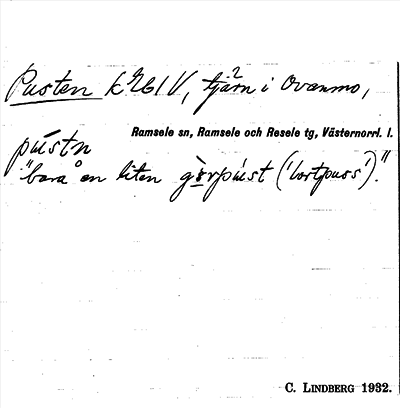 Pusten k261V, tjärn i Ovanmo,
Ramsele sn, Ramsele och Resele tg, Västernorrl. l.
pústn
"bara en liten görpúst ('lortpuss')."
C. LINDBERG 1932.